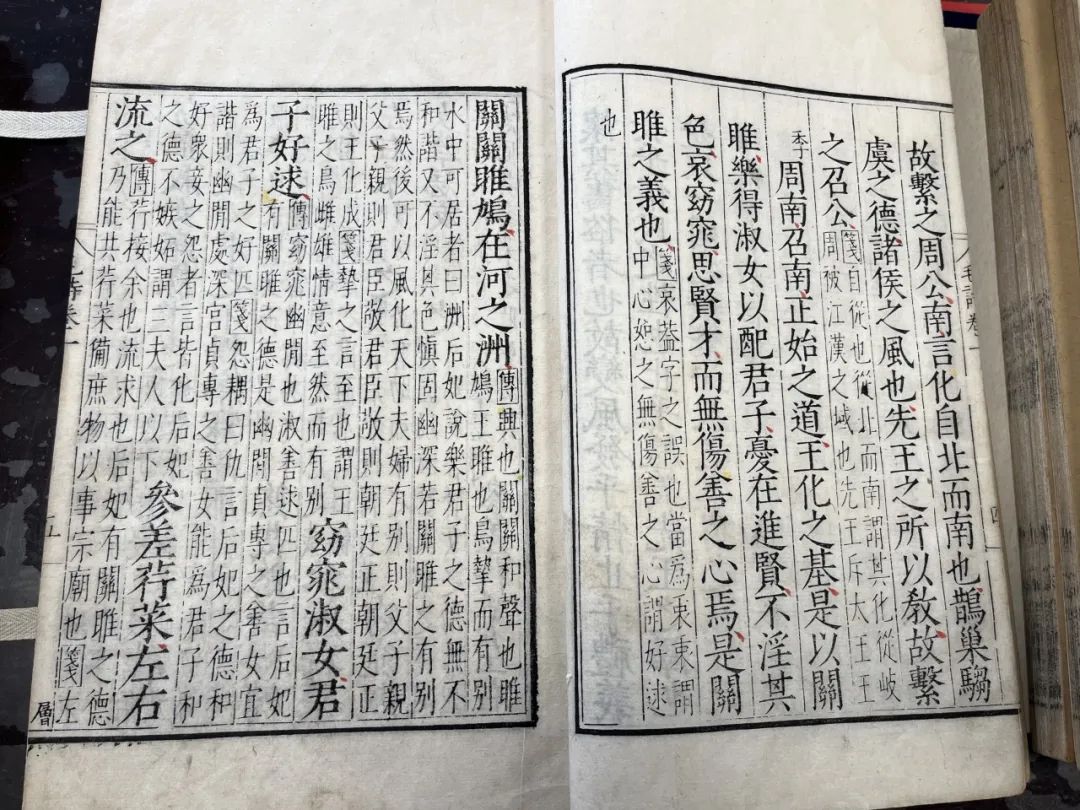 故繫之周公南言化自北而南也鵲巢騶
虞之德諸侯之風也先王之所以敎故繫
之召公
箋自從也從北而南謂其化從岐
周被江漢之域也先王斥大王王
季
周南召南正始之道王化之基是以關
雎樂得淑女以配君子憂在進賢不淫其
色哀窈窕思賢才而無傷善之心焉是關
雎之義也
箋哀蓋字之誤也當爲衷衷謂
中心恕之無傷善之心謂好逑
也
毛詩卷一
四
關關雎鳩在河之洲
傳興也關關和聲也雎
鳩王雎也鳥摯而有别
水中可居者曰洲后妃說樂君子之德無不
和諧又不淫其色愼固幽深若關雎之有别
焉然後可以風化天下夫婦有别則父子親
父子親則君臣敬君臣敬則朝廷正朝廷正
則王化成箋摯之言至也謂王
雎之鳥雌雄情意至然而有别
窈窕淑女君
子好逑
傳窈窕幽閒也淑善逑匹也言后妃
有關雎之德是幽閒貞專之善女宜
爲君子之好匹箋怨耦曰仇言后妃之德和
諧則幽閒處深宮貞專之善女能爲君子和
好衆妾之怨者言皆化后妃
之德不嫉妬謂三夫人以下
參差荇菜左右
流之
傳荇接余也流求也后妃有關雎之德
乃能共荇菜備庶物以事宗廟也箋左
詩卷一
五
層